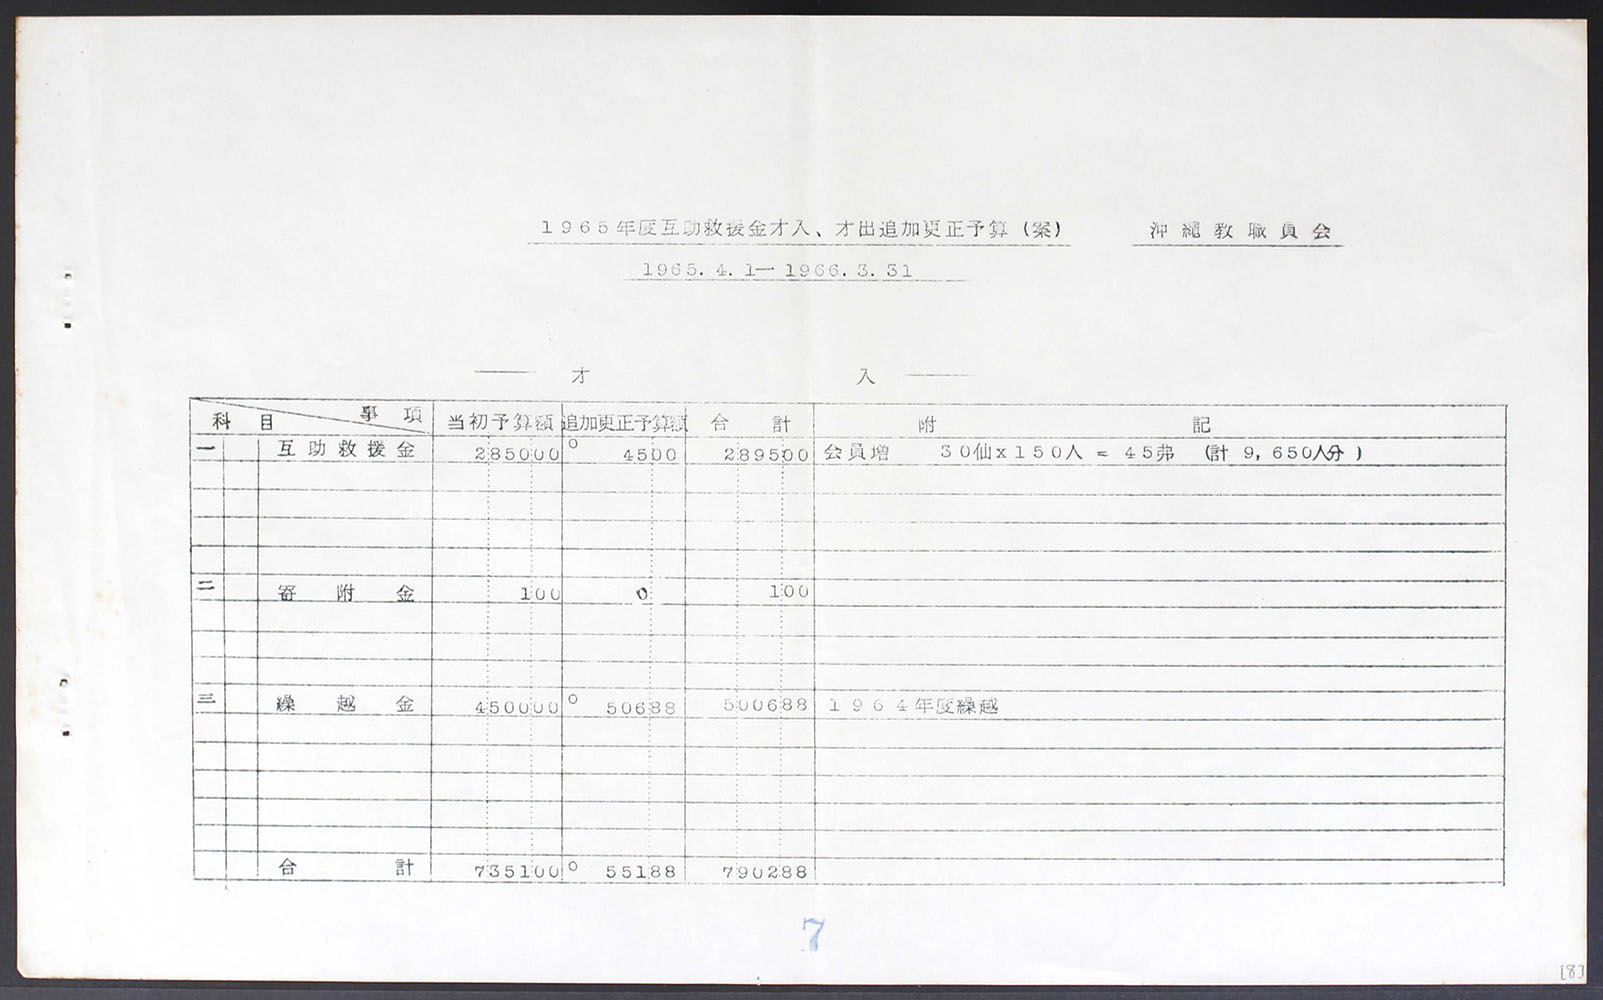 1965年度互助救援金才入、才出追加更正予算（案） 沖縄教職員会
1965.4.1－1966.3.31
才 入
科目 事項 当初予算額 追加更正予算額 合計 附記
一 互助救援金 285000 ○ 4500 289500 会員増 30仙x150人 = 45弗 (計 9,650人分)
二 寄附金 100 0 100
三 繰越金 450000 ○ 50688 500688 1964年度繰越
合計 735100 ○ 55188 790288
7
[8]